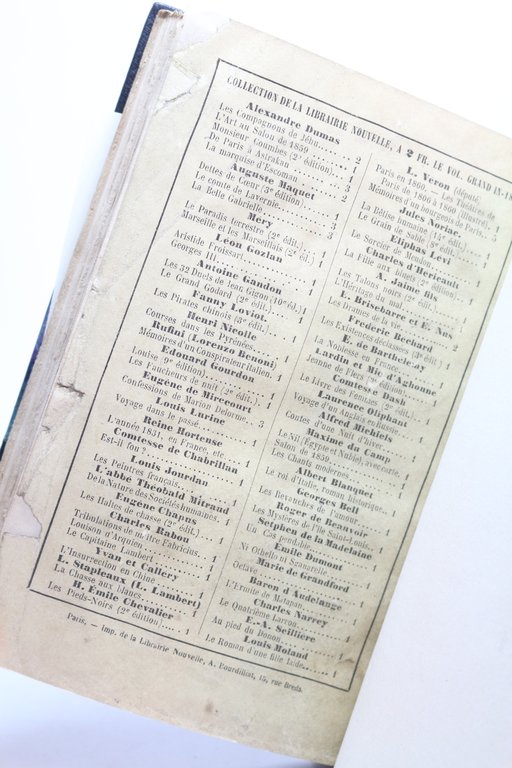 COLLECTION DE LA LIBRAIRIE NOUVELLE, A 2 FR. LE VOL. GRAND IN-18
Alexandre Dumas
Les Compagnons de Jéhu 2
L'Art au Salon de 1859
Monsieur Coumbes (2e édition) 1
De Paris à Astrakan 3
La marquise d'Escoman 2
Auguste Maquet
Dettes de Cœur (3e édition) 1
Le comte de Lavernie 3
La Belle Gabrielle 3
Méry
Le Paradis terrestre (2e édit.) 1
Marseille et les Marseillais (2e éd.) 1
Léon Gozlan
Aristide Froissart
Georges III
Antoine Gandon
Les 32 Duels de Jean Gigon (10e éd.) 1
Le Grand Godard (2e édit.) 1
Fanny Loviot
Les Pirates chinois (3e édit.) 1
Henri Nicolle
Courses dans les Pyrénées 1
Rufini (Lorenzo Benoni)
Mémoires d'un Conspirateur italien. 1
Edouard Gourdon
Louise (9e édition) 1
Les Faucheurs de nuit (2e édit.) 1
Eugène de Mirecourt
Confessions de Marion Delorme 3
Louis Lurine
Voyage dans le passé 1
Reine Hortense
L'année 1831, en France, etc. 1
Comtesse de Chabrillan
Est-il fou? 1
Louis Jourdan
Les Peintres français 1
L'abbé Théobald Mitraud
De la Nature des Sociétés humaines. 1
Eugène Chapus
Les Haltes de chasse (2e édit.) 1
Charles Rabou
Tribulations de maître Fabricius. 1
Louison d'Arquien 1
Le Capitaine Lambert 1
Yvan et Callery
L'Insurrection en Chine 1
L. Stapleaux (L. Lambert)
La Chasse aux blancs 1
H. Émile Chevalier
Les Pieds-Noirs (2e édition) 1
L. Veron (député)
Paris en 1860. — Les Théâtres de
Paris de 1806 à 1860 (illustré). 1
Mémoires d'un bourgeois de Paris. 5
Jules Noriac
La Bêtise humaine (14e édit.) 1
Le Grain de Sable (8e édit.) 1
Eliphas Lévi
Le Sorcier de Meudon 1
Charles d'Hericault
La Fille aux bluets (2e édition) 1
A. Jaime fils
Les Talons noirs (2e édit.) 1
L'Héritage du mal 1
E. Brisebarre et E. Nus
Les Drames de la vie 2
Frédéric Bechard
Les Existences déclassées (3e édit.) 1
E. de Barthelemy
La Noblesse en France 1
Lardin et Mie d'Aghonne
Jeanne de Flers (2e édition) 1
Comtesse Dash
Le Livre des Femmes (2e édit.) 1
Laurence Oliphant
Voyage d'un Anglais en Russie 1
Alfred Michiels
Contes d'une Nuit d'hiver 1
Maxime du Camp
Le Nil (Égypte et Nubie), avec carte. 1
Salon de 1859
Les Chants modernes 1
Albert Blanquet
Le roi d'Italie, roman historique 1
Georges Bell
Les Revanches de l'Amour 1
Roger de Beauvoir
Les Mystères de l'île Saint-Louis. 1
Stéphen de la Madelaine
Un Cas pendable 1
Émile Dumont
Ni Othello ni Sganarelle 1
Marie de Grandford
Octave 1
Baron d'Audelange
L'Ermite de Matapan 1
Charles Narrey
Le Quatrième Larron 1
E.-A. Seillière
Au pied du Donon 1
Louis Moland
Le Roman d'une fille laide 1
Paris, — Imp. de la Librairie Nouvelle, A. Bourdilliat, 15, rue Breda.